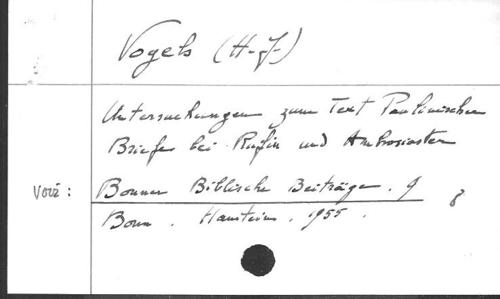 Vogels (H-J)
Untersuchungen zum Text Paulinischer
Briefe bei Rufin und Ambrosiaster
Voir : Bonner Biblische Beiträge. 9
Bonn. Hanstein. 1955.